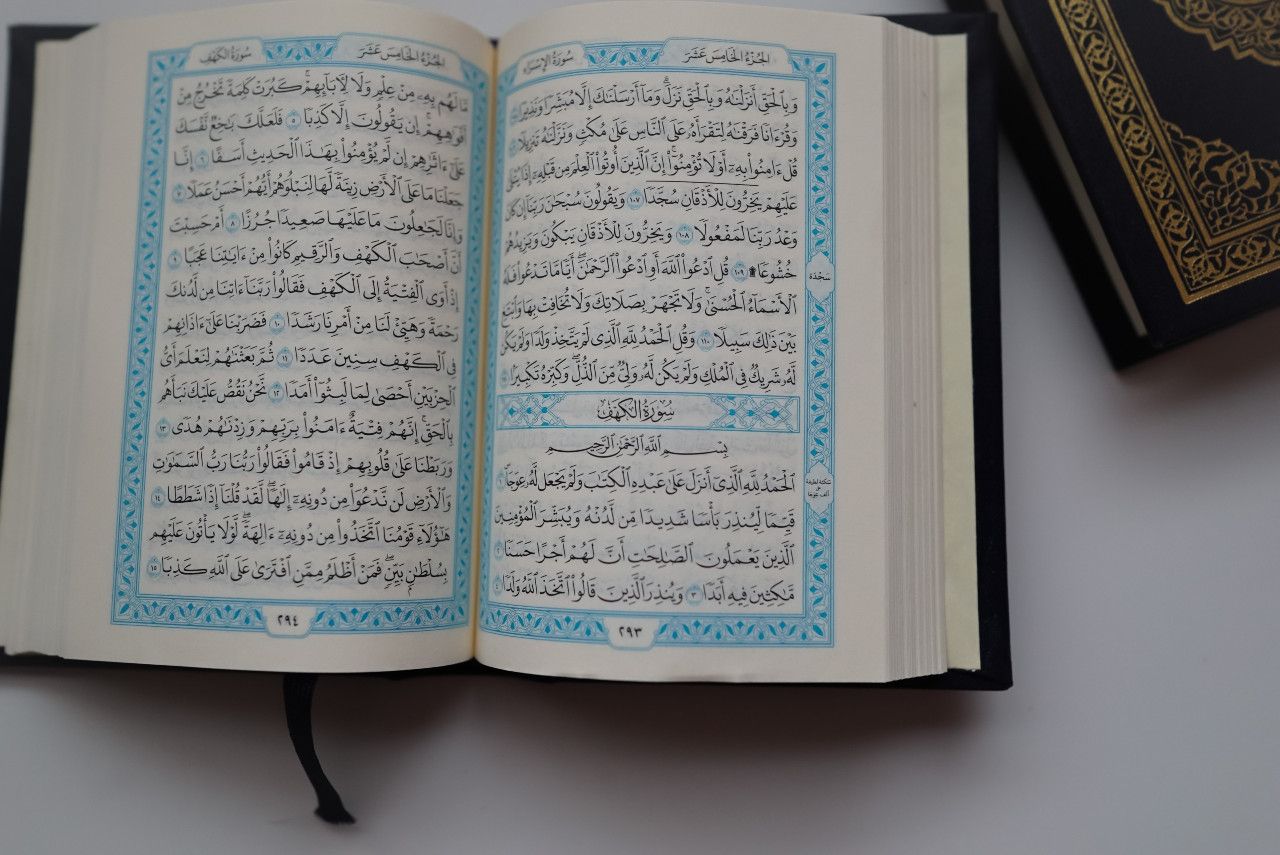 الجزء الخامس عشر
سورة الإسراء
وَبِالْحَقِّ أَنزَلْنَٰهُ وَبِالْحَقِّ نَزَلَ ۗ وَمَآ أَرْسَلْنَٰكَ إِلَّا مُبَشِّرًا وَنَذِيرًا
وَقُرْءَانًا فَرَقْنَٰهُ لِتَقْرَأَهُۥ عَلَى ٱلنَّاسِ عَلَىٰ مُكْثٍ وَنَزَّلْنَٰهُ تَنزِيلًا
قُلْ ءَامِنُوا۟ بِهِۦٓ أَوْ لَا تُؤْمِنُوٓا۟ ۚ إِنَّ ٱلَّذِينَ أُوتُوا۟ ٱلْعِلْمَ مِن قَبْلِهِۦٓ إِذَا يُتْلَىٰ
عَلَيْهِمْ يَخِرُّونَ لِلْأَذْقَانِ سُجَّدًا ١٠٧ وَيَقُولُونَ سُبْحَٰنَ رَبِّنَآ إِن كَانَ
وَعْدُ رَبِّنَا لَمَفْعُولًا ١٠٨ وَيَخِرُّونَ لِلْأَذْقَانِ يَبْكُونَ وَيَزِيدُهُمْ
خُشُوعًا ۩ ١٠٩ قُلِ ٱدْعُوا۟ ٱللَّهَ أَوِ ٱدْعُوا۟ ٱلرَّحْمَٰنَ ۖ أَيًّا مَّا تَدْعُوا۟ فَلَهُ
ٱلْأَسْمَآءُ ٱلْحُسْنَىٰ ۚ وَلَا تَجْهَرْ بِصَلَاتِكَ وَلَا تُخَافِتْ بِهَا وَٱبْتَغِ
بَيْنَ ذَٰلِكَ سَبِيلًا ١١٠ وَقُلِ ٱلْحَمْدُ لِلَّهِ ٱلَّذِى لَمْ يَتَّخِذْ وَلَدًا وَلَمْ يَكُن
لَّهُۥ شَرِيكٌ فِى ٱلْمُلْكِ وَلَمْ يَكُن لَّهُۥ وَلِىٌّ مِّنَ ٱلذُّلِّ ۖ وَكَبِّرْهُ تَكْبِيرًا
سُورَةُ الكَهْفِ
بِسْمِ ٱللَّهِ ٱلرَّحْمَٰنِ ٱلرَّحِيمِ
ٱلْحَمْدُ لِلَّهِ ٱلَّذِىٓ أَنزَلَ عَلَىٰ عَبْدِهِ ٱلْكِتَٰبَ وَلَمْ يَجْعَل لَّهُۥ عِوَجًا ١
قَيِّمًا لِّيُنذِرَ بَأْسًا شَدِيدًا مِّن لَّدُنْهُ وَيُبَشِّرَ ٱلْمُؤْمِنِينَ
ٱلَّذِينَ يَعْمَلُونَ ٱلصَّٰلِحَٰتِ أَنَّ لَهُمْ أَجْرًا حَسَنًا ٢
مَّٰكِثِينَ فِيهِ أَبَدًا ٣ وَيُنذِرَ ٱلَّذِينَ قَالُوا۟ ٱتَّخَذَ ٱللَّهُ وَلَدًا ٤
سَجْدَة
سكتة لطيفة
على
ألف عوجا
٢٩٣
الجزء الخامس عشر
سورة الكهف
مَّا لَهُم بِهِۦ مِنْ عِلْمٍ وَلَا لِءَابَآئِهِمْ ۚ كَبُرَتْ كَلِمَةً تَخْرُجُ مِنْ
أَفْوَٰهِهِمْ ۚ إِن يَقُولُونَ إِلَّا كَذِبًا ٥ فَلَعَلَّكَ بَٰخِعٌ نَّفْسَكَ
عَلَىٰٓ ءَاثَٰرِهِمْ إِن لَّمْ يُؤْمِنُوا۟ بِهَٰذَا ٱلْحَدِيثِ أَسَفًا ٦ إِنَّا
جَعَلْنَا مَا عَلَى ٱلْأَرْضِ زِينَةً لَّهَا لِنَبْلُوَهُمْ أَيُّهُمْ أَحْسَنُ عَمَلًا ٧
وَإِنَّا لَجَٰعِلُونَ مَا عَلَيْهَا صَعِيدًا جُرُزًا ٨ أَمْ حَسِبْتَ
أَنَّ أَصْحَٰبَ ٱلْكَهْفِ وَٱلرَّقِيمِ كَانُوا۟ مِنْ ءَايَٰتِنَا عَجَبًا ٩
إِذْ أَوَى ٱلْفِتْيَةُ إِلَى ٱلْكَهْفِ فَقَالُوا۟ رَبَّنَآ ءَاتِنَا مِن لَّدُنكَ
رَحْمَةً وَهَيِّئْ لَنَا مِنْ أَمْرِنَا رَشَدًا ١٠ فَضَرَبْنَا عَلَىٰٓ ءَاذَانِهِمْ
فِى ٱلْكَهْفِ سِنِينَ عَدَدًا ١١ ثُمَّ بَعَثْنَٰهُمْ لِنَعْلَمَ أَىُّ
ٱلْحِزْبَيْنِ أَحْصَىٰ لِمَا لَبِثُوٓا۟ أَمَدًا ١٢ نَّحْنُ نَقُصُّ عَلَيْكَ نَبَأَهُم
بِٱلْحَقِّ ۚ إِنَّهُمْ فِتْيَةٌ ءَامَنُوا۟ بِرَبِّهِمْ وَزِدْنَٰهُمْ هُدًى ١٣
وَرَبَطْنَا عَلَىٰ قُلُوبِهِمْ إِذْ قَامُوا۟ فَقَالُوا۟ رَبُّنَا رَبُّ ٱلسَّمَٰوَٰتِ
وَٱلْأَرْضِ لَن نَّدْعُوَا۟ مِن دُونِهِۦٓ إِلَٰهًا ۖ لَّقَدْ قُلْنَآ إِذًا شَطَطًا ١٤
هَٰٓؤُلَآءِ قَوْمُنَا ٱتَّخَذُوا۟ مِن دُونِهِۦٓ ءَالِهَةً ۖ لَّوْلَا يَأْتُونَ عَلَيْهِم
بِسُلْطَٰنٍۭ بَيِّنٍ ۖ فَمَنْ أَظْلَمُ مِمَّنِ ٱفْتَرَىٰ عَلَى ٱللَّهِ كَذِبًا ١٥
٢٩٤